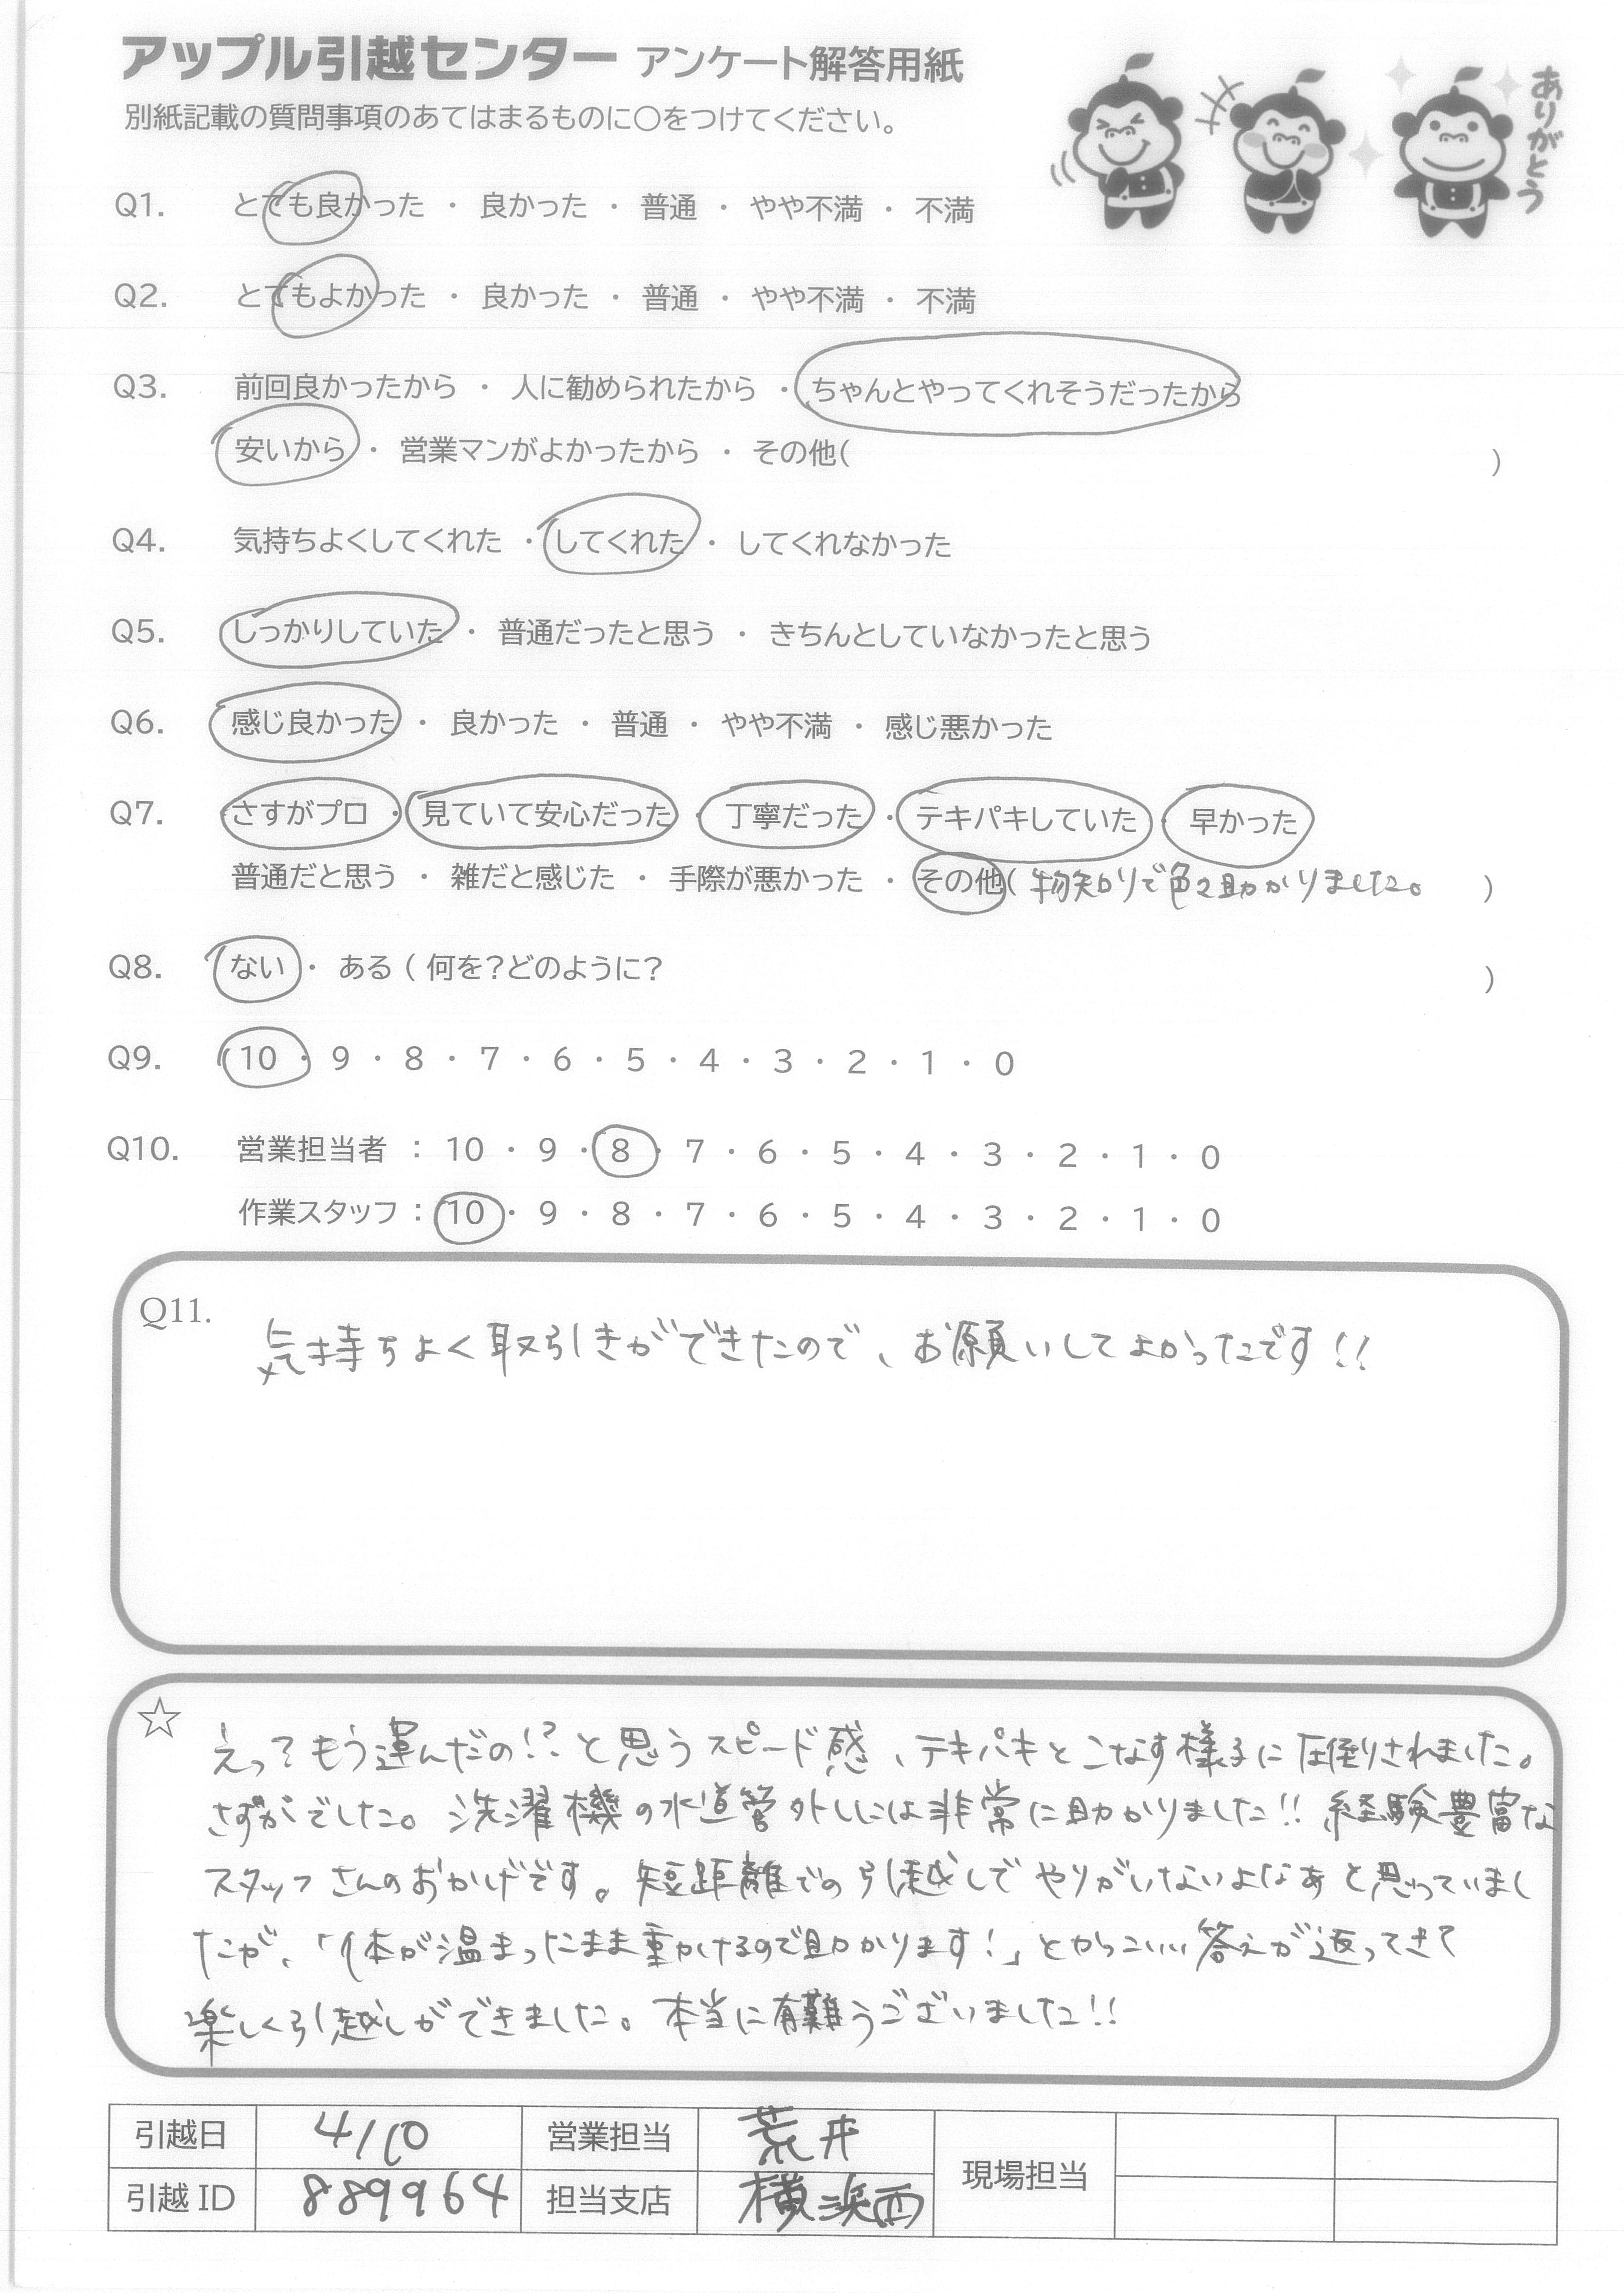 アップル引越センター アンケート解答用紙
別紙記載の質問事項のあてはまるものに〇をつけてください。
ありがとう
Q1. とても良かった ・ 良かった ・ 普通 ・ やや不満 ・ 不満
Q2. とてもよかった ・ 良かった ・ 普通 ・ やや不満 ・ 不満
Q3. 前回良かったから ・ 人に勧められたから ・ ちゃんとやってくれそうだったから
安いから ・ 営業マンがよかったから ・ その他( )
Q4. 気持ちよくしてくれた ・ してくれた ・ してくれなかった
Q5. しっかりしていた ・ 普通だったと思う ・ きちんとしていなかったと思う
Q6. 感じ良かった ・ 良かった ・ 普通 ・ やや不満 ・ 感じ悪かった
Q7. さすがプロ ・ 見ていて安心だった ・ 丁寧だった ・ テキパキしていた ・ 早かった
普通だと思う ・ 雑だと感じた ・ 手際が悪かった ・ その他( 物知りで色々助かりました。 )
Q8. ない ・ ある ( 何を?どのように? )
Q9. 10 ・ 9 ・ 8 ・ 7 ・ 6 ・ 5 ・ 4 ・ 3 ・ 2 ・ 1 ・ 0
Q10. 営業担当者 : 10 ・ 9 ・ 8 ・ 7 ・ 6 ・ 5 ・ 4 ・ 3 ・ 2 ・ 1 ・ 0
作業スタッフ : 10 ・ 9 ・ 8 ・ 7 ・ 6 ・ 5 ・ 4 ・ 3 ・ 2 ・ 1 ・ 0
Q11. 気持ちよく取引きができたので、お願いしてよかったです!!
☆ えってもう運んだの!?と思うスピード感、テキパキとこなす様子に圧倒りされました。
さすがでした。洗濯機の水道管外しには非常に助かりました!! 経験豊富な
スタッフさんのおかげです。短距離での引越しでやりがいないよなあと思っていまし
たが、「体が温まったまま動けるので助かります!」とかっこいい答えが返ってきて
楽しく引越しができました。本当に有難うございました!!
引越日 4/10 営業担当 荒井 現場担当
引越ID 889964 担当支店 横浜西